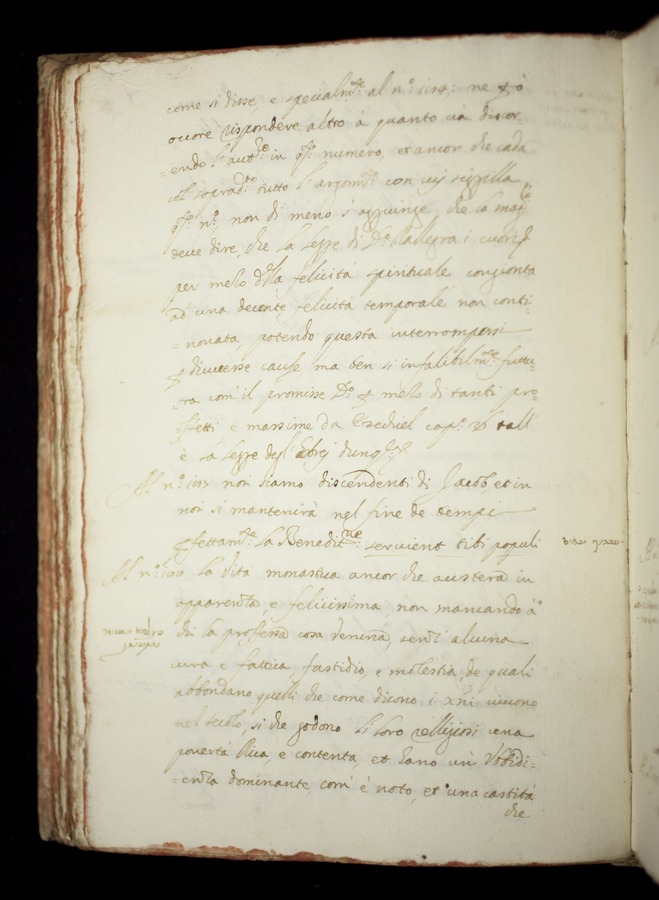 come si disse e specialm.te al n.o ; ne p.ò
occore rispondere altro a quanto và discor-
=endo l'aut.re in q.o numero, et ancor che cada
col soprad.o tutto l'argom.to con
q.o n.o non di meno s'aggiunge, che la
deve dire, che la legge di D.o rallegra i cuori
per mezo della felicità spirituale congionta
ad una decente felicità temporale non conti-
=novata, potendo questa interrompersi
p diuerse cause ma ben si infalibilm.te futu-
ra com'il promisse D.o p mezo di tanti pro-
ffetti e massime da Ezechiel cap.o 36 tall'
è la legge degl'Ebrej dunq.e
Al n.o noi siamo discendenti di Jacob, et in
noi si mantenirà nel fine de tempi
pfettam.te la Benedit.ne servient tibi populi
Al n.o La vita monastica ancor che austera in
apparenza, e felicissima non mancando à
chi la professa cosa veruna, senz'alcuna
cura e fattica, fastidio, e molestia, de quali
abbondano quelli che come dicono i xñi vivono
nel secolo, si che godono li loro relligiosi una
povertà rica, e contenta, et hano un' obbidi-
=enza dominante, com' è noto, et una castità
che